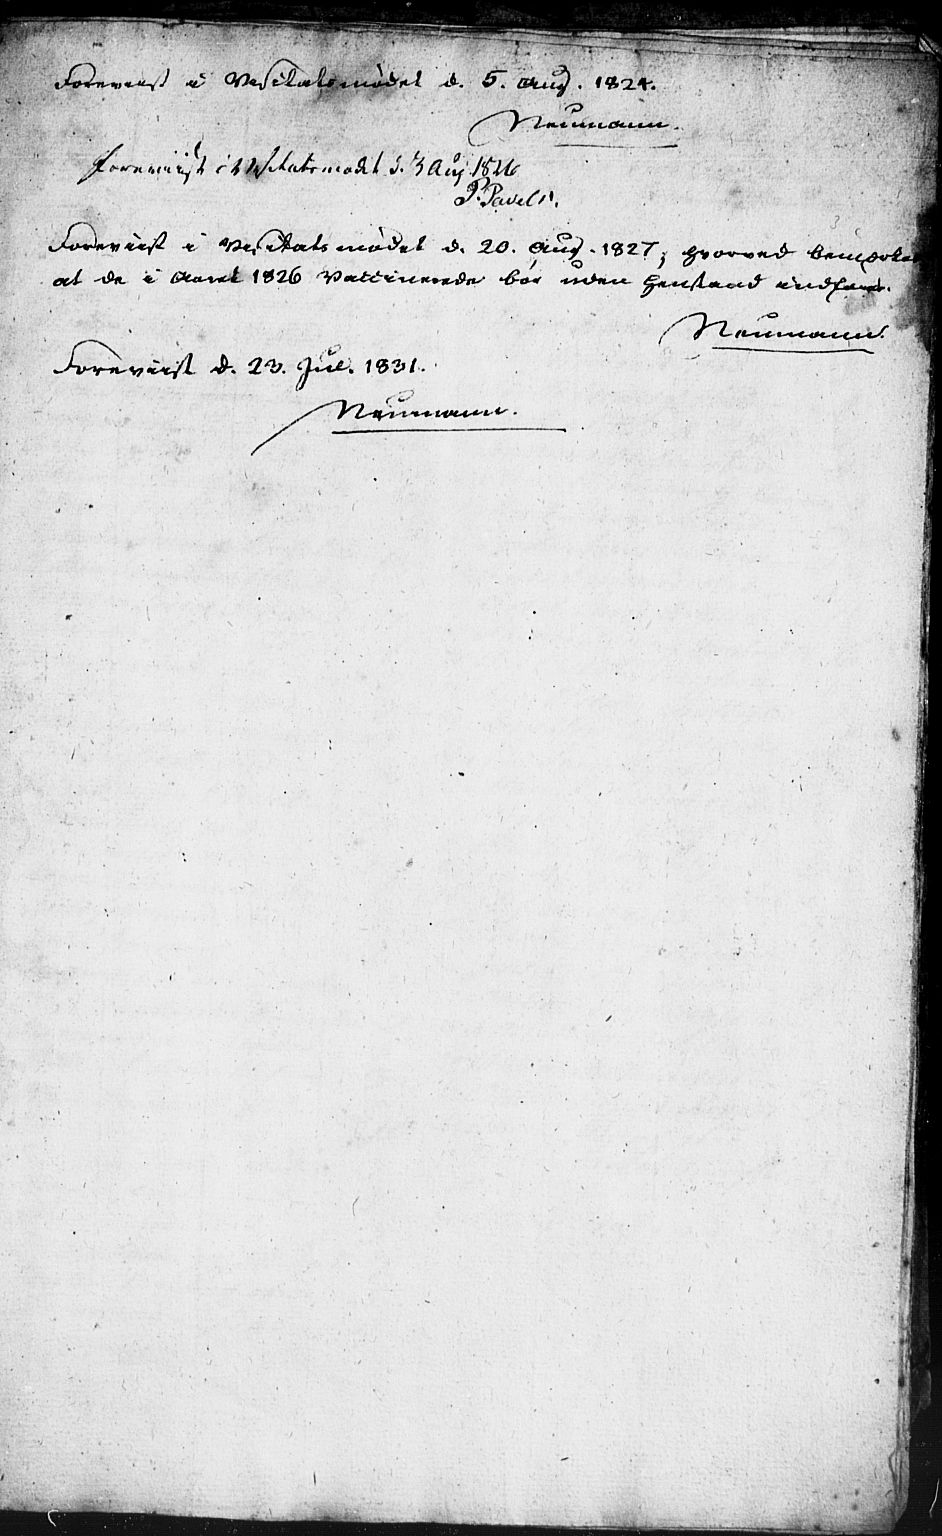 Foreviist i Visitatsmødet d. 5. Aug. 1824.
Neumann.
foreviist i Visitatsmødet d. 3 Aug 1826
P. Pavels.
Foreviist i Visitatsmødet d. 20. Aug. 1827, hvorved bemærkes
at de i Aaret 1826 Vaccinerede bør uden Henstand indføres.
Neumann.
Foreviist d. 23. Jul. 1831.
Neumann.